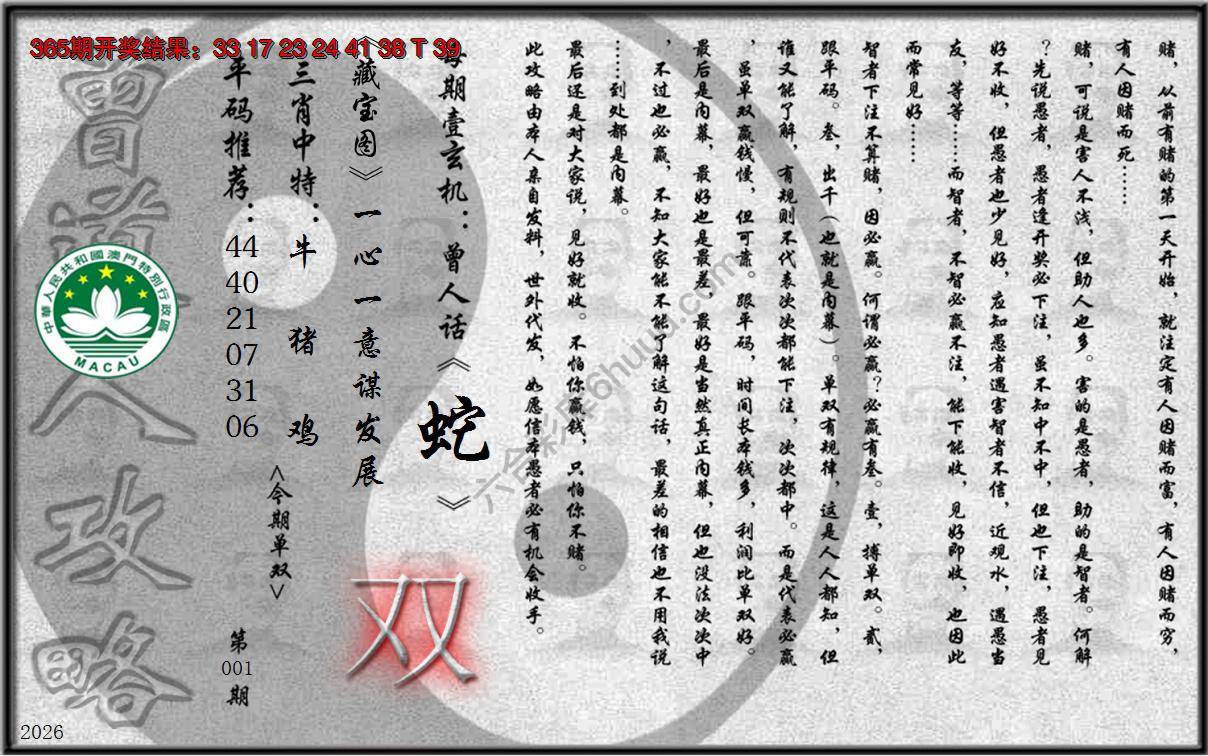 365期开奖结果：33 17 23 24 41 38 T 39
赌，从前有赌的第一天开始，就注定有人因赌而富，有人因赌而穷，
有人因赌而死……
赌，可说是害人不浅，但助人也多。害的是愚者，助的是智者。何解
？先说愚者，愚者逢开奖必下注，虽不知中不中，但也下注，愚者见
好不收，但愚者也少见好，应知愚者遇害智者不信，近观水，遇愚当
友，等等……而智者，不智必赢不注，能下能收，见好即收，也因此
而常见好……
智者下注不算赌，因必赢。何谓必赢？必赢有叁。壹，搏单双。贰，
跟平码。叁，出千（也就是内幕）。单双有规律，这是人人都知，但
谁又能了解，有规则不代表次次都能下注，次次都中。而是代表必赢
，虽单双赢钱慢，但可靠。跟平码，时间长本钱多，利润比单双好。
最后是内幕，最好也是最差，最好是当然真正内幕，但也没法次次中
，不过也必赢，不知大家能不能了解这句话，最差的相信也不用我说
……到处都是内幕。
最后还是对大家说，见好就收。不怕你赢钱，只怕你不赌。
此攻略由本人亲自发料，世外代发，如愿信本愚者必有机会收手。
每期壹玄机：曾人话《蛇》
《藏宝图》一心一意谋发展
双
三肖中特：牛 猪 鸡
<今期单双>
平码推荐：
44
40
21
07
31
06
第
001
期
曾道人攻略
中華人民共和國澳門特別行政區
MACAU
六合彩库6huuu.com
2026